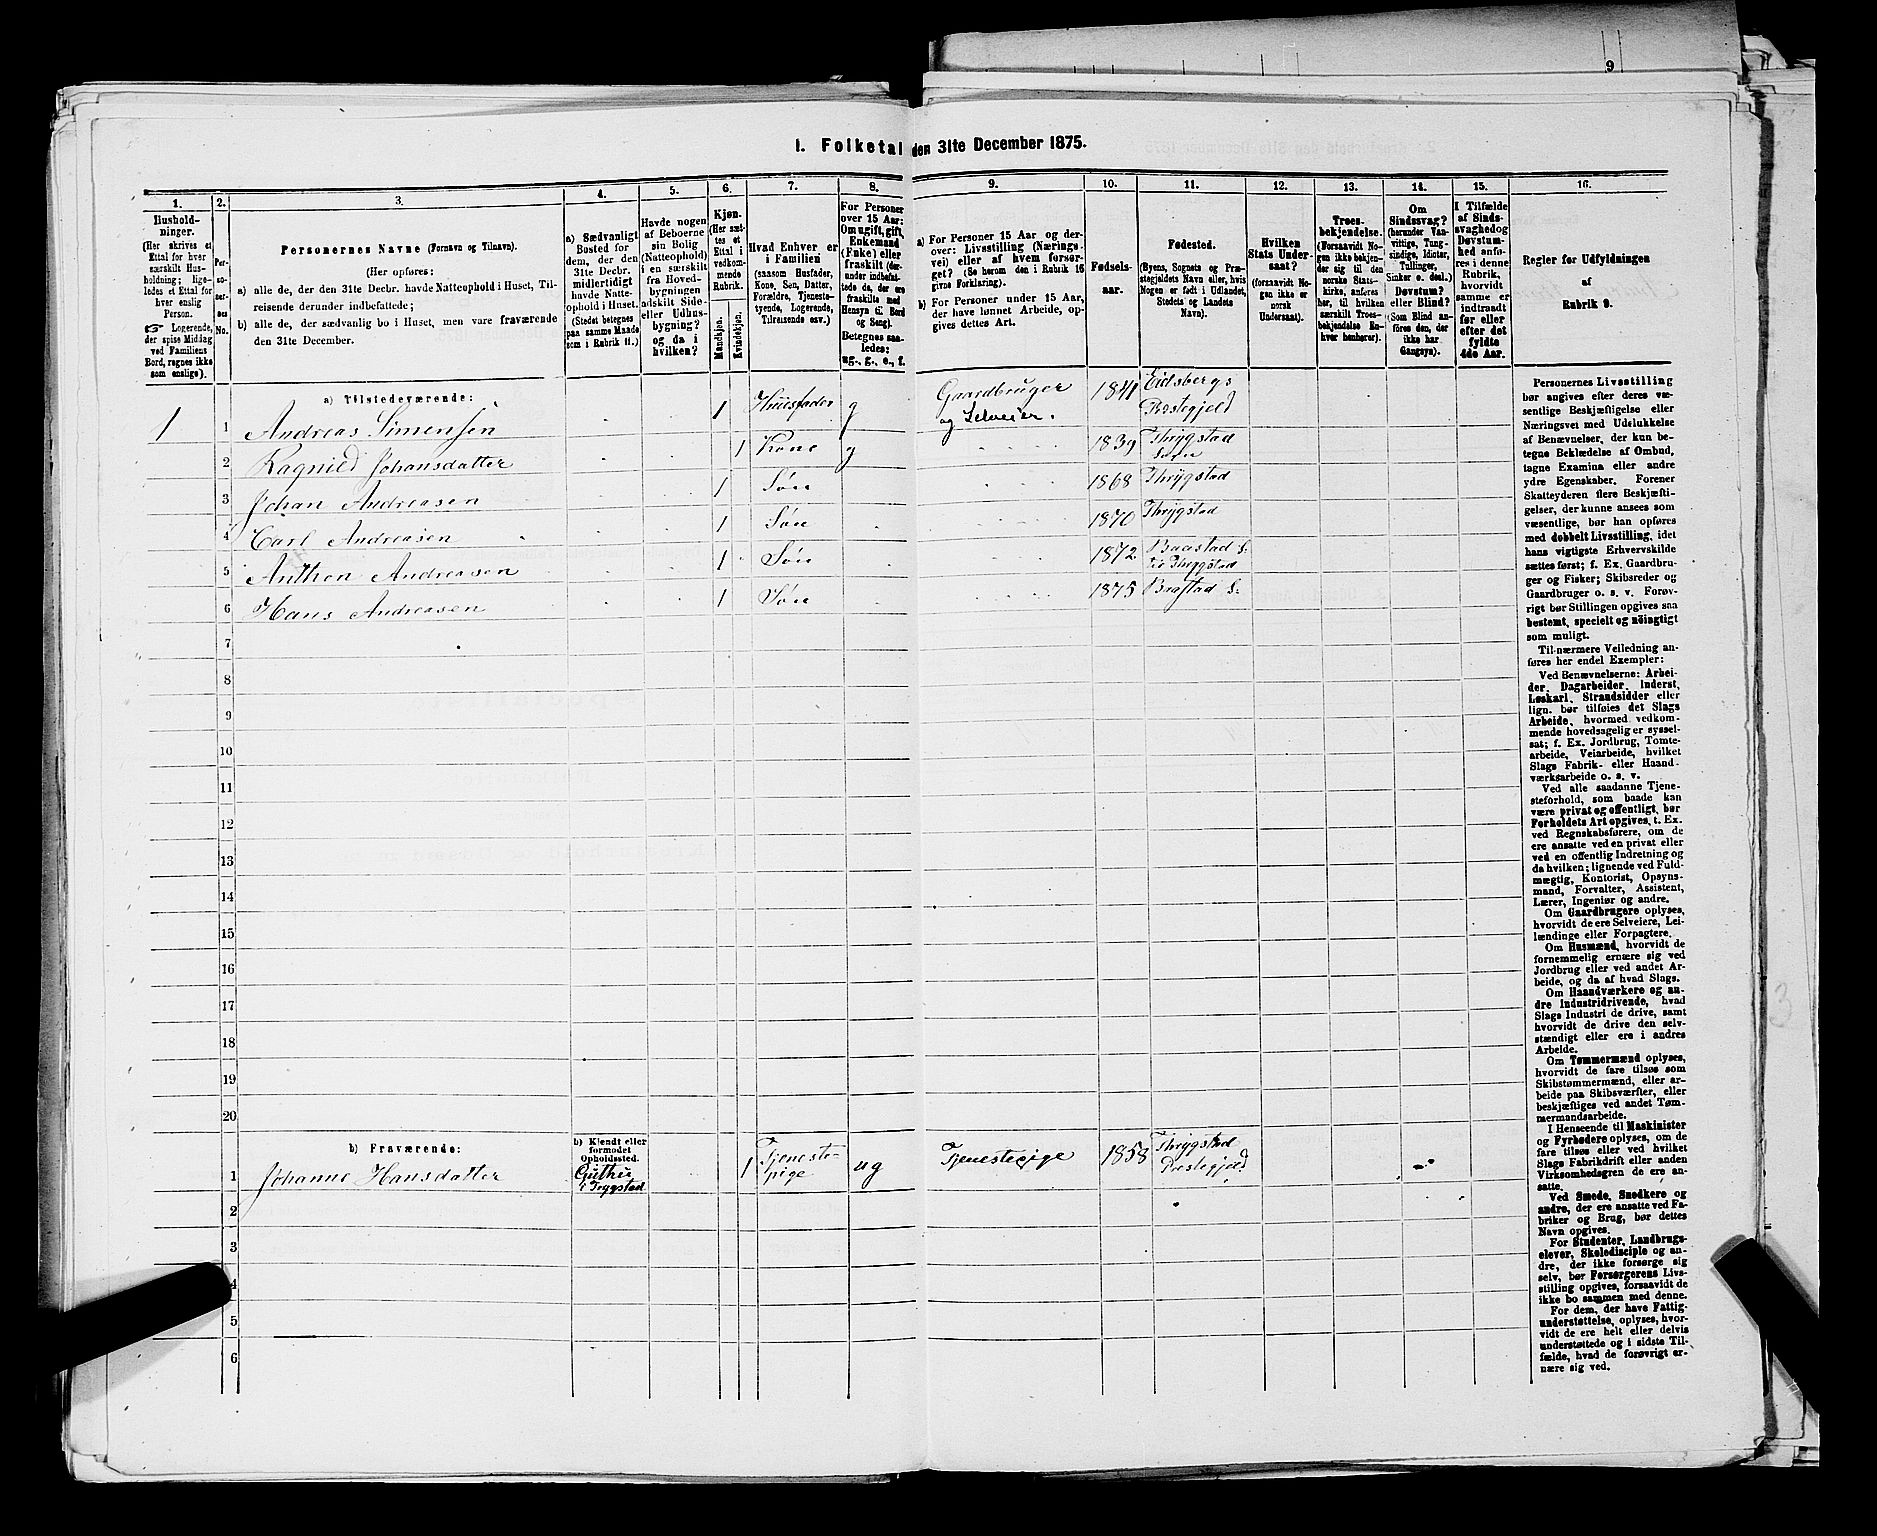 9
1. Folketal den 31te December 1875.
1. 2. 3. 4. 5. 6. 7. 8. 9. 10. 11. 12. 13. 14. 15. 16.
Hushold-
ninger.
(Her skrives et
Ettal for hver
særskilt Hus-
holdning; lige-
ledes et Ettal for
hver enslig
Person.
☞ Logerende,
der spise Middag
ved Familiens
Bord, regnes ikke
som enslige).
Per-
so-
ner-
nes
No.
Personernes Navne (Fornavn og Tilnavn).
(Her opføres:
a) alle de, der den 31te Decbr. havde Natteophold i Huset, Til-
reisende derunder indbefattede;
b) alle de, der sædvanlig bo i Huset, men vare fraværende
den 31te December.
a) Sædvanligt
Bosted for
dem, der den
31te Decbr.
midlertidigt
havde Natte-
ophold i Huset.
(Stedet betegnes
paa samme Maade
som i Rubrik 11.)
Havde nogen
af Beboerne
sin Bolig
(Natteophold)
i en særskilt
fra Hoved-
bygningen
adskilt Side-
eller Udhus-
bygning?
og da i
hvilken?
Kjøn.
(Her sæt-
tes et
Ettal i
vedkom-
mende
Rubrik.
Mandkjøn.
Kvindekjøn.
Hvad Enhver er
i Familien
(saasom Husfader,
Kone, Søn, Datter,
Forældre, Tjeneste-
tyende, Logerende,
Tilreisende osv.)
For Personer
over 15 Aar:
Om ugift, gift,
Enkemand
(Enke) eller
fraskilt (der-
under indbefat-
tede de, der ere
fraskilte med
Hensyn til Bord
og Seng).
Betegnes saa-
ledes:
ug., g., e., f.
a) For Personer 15 Aar og der-
over: Livsstilling (Nærings-
vei) eller af hvem forsør-
get? (Se herom den i Rubrik 16
givne Forklaring).
b) For Personer under 15 Aar,
der have lønnet Arbeide, op-
gives dettes Art.
Fødsels-
aar.
Fødested.
(Byens, Sognets og Præ-
stegjeldets Navn eller, hvis
Nogen er født i Udlandet,
Stedets og Landets
Navn).
Hvilken
Stats Under-
saat?
(forsaavidt No-
gen ikke er
norsk
Undersaat).
Troes-
bekjendelse.
(Forsaavidt No-
gen ikke bekjen-
der sig til den
norske Stats-
kirke, anføres
her, til hvilken
særskilt Troes-
bekjendelse En-
hver henhører).
Om
Sindssvag?
(herunder Van-
vittige, Tung-
sindige, Idioter,
Tullinger,
Sinker o. desl.)
Døvstum?
eller Blind?
(Som Blind an-
føres den, der
ikke har
Gangsyn).
I Tilfælde
af Sinds-
svaghed og
Døvstum-
hed anfø-
res i denne
Rubrik,
hvorvidt
samme er
indtraadt
før eller
efter det
fyldte
4de Aar.
Regler for Udfyldningen
af
Rubrik 9.
a) Tilstedeværende:
1 1 Andreas Simensen 1 Huusfader g Gaardbruger og Selveier. 1841 Eidsbergs Præstegjeld
2 Ragnild Johansdatter 1 Kone g 1839 Thrygstad Sovn
3 Johan Andreasen 1 Søn 1868 Thrygstad
4 Carl Andreasen 1 Søn 1870 Thrygstad
5 Anthon Andreasen 1 Søn 1872 Baastad S: Thrygstad
6 Hans Andreasen 1 Søn 1875 Baastad S:
7
8
9
10
11
12
13
14
15
16
17
18
19
20
b) Fraværende:
b) Kjendt eller
formodet
Opholdssted.
1 Johanne Hansdatter Guthu i Trygstad 1 Tjeneste-pige ug Tjenestepige 1858 Thrygstad Prestegjeld
2
3
4
5
6
Personernes Livsstilling
bør angives efter deres væ-
sentlige Beskjæftigelse eller
Næringsvei med Udelukkelse
af Benævnelser, der kun be-
tegne Beklædelse af Ombud,
tagne Examina eller andre
ydre Egenskaber. Forener
Skatteyderen flere Beskjæfti-
gelser, der kunne ansees som
væsentlige, bør han opføres
med dobbelt Livsstilling, idet
hans vigtigste Erhvervskilde
sættes først; f. Ex. Gaardbru-
ger og Fisker; Skibsreder og
Gaardbruger o. s. v. Forøv-
rigt bør Stillingen opgives saa
bestemt, specielt og nöiagtigt
som muligt.
Til nærmere Veiledning an-
føres her endel Exempler:
Ved Benævnelserne: Arbei-
der, Dagarbeider, Inderst,
Løskarl, Strandsidder eller
lign. bør tilføies det Slags
Arbeide, hvormed vedkom-
mende hovedsagelig er syssel-
sat; f. Ex. Jordbrug, Tomte-
arbeide, Veiarbeide, hvilket
Slags Fabrik- eller Haand-
værksarbeide o. s. v.
Ved alle saadanne Tjene-
steforhold, som baade kan
være privat og offentligt, bør
Forholdets Art opgives, t. Ex.
ved Regnskabsførere, om de
ere ansatte ved en privat eller
ved en offentlig Indretning og
da hvilken; lignende ved Fuld-
mægtig, Kontorist, Opsyns-
mand, Forvalter, Assistent,
Lærer, Ingeniør og andre.
Om Gaardbrugere oplyses,
hvorvidt de ere Selveiere, Lei-
lændinge eller Forpagtere.
Om Husmænd, hvorvidt de
fornemmelig ernære sig ved
Jordbrug eller ved andet Ar-
beide, og da af hvad Slags.
Om Haandværkere og an-
dre Industridrivende, hvad
Slags Industri de drive, samt
hvorvidt de drive den selv-
stændigt eller ere i andres
Arbeide.
Om Tømmermænd oplyses,
hvorvidt de fare tilsøs som
Skibstømmermænd, eller ar-
beide paa Skibsværfter, eller
beskjæftiges ved andet Tøm-
mermandsarbeide.
I Henseende til Maskinister
og Fyrbødere oplyses, om de
fare tilsøs eller ved hvilket
Slags Fabrikdrift eller anden
Virksomhedsgren de ere an-
satte.
Ved Smede, Snedkere og
andre, der ere ansatte ved Fa-
briker og Brug, bør dettes
Navn opgives.
For Studenter, Landbrugs-
elever, Skoledisciple og an-
dre, der ikke forsørge sig
selv, bør Forsørgerens Livs-
stilling opgives, forsaavidt de
ikke bo sammen med denne.
For dem, der have Fattig-
understøttelse, oplyses, hvor-
vidt de ere helt eller delvis
understøttede og i sidste Til-
fælde, hvad de forøvrigt er-
nære sig ved.
3